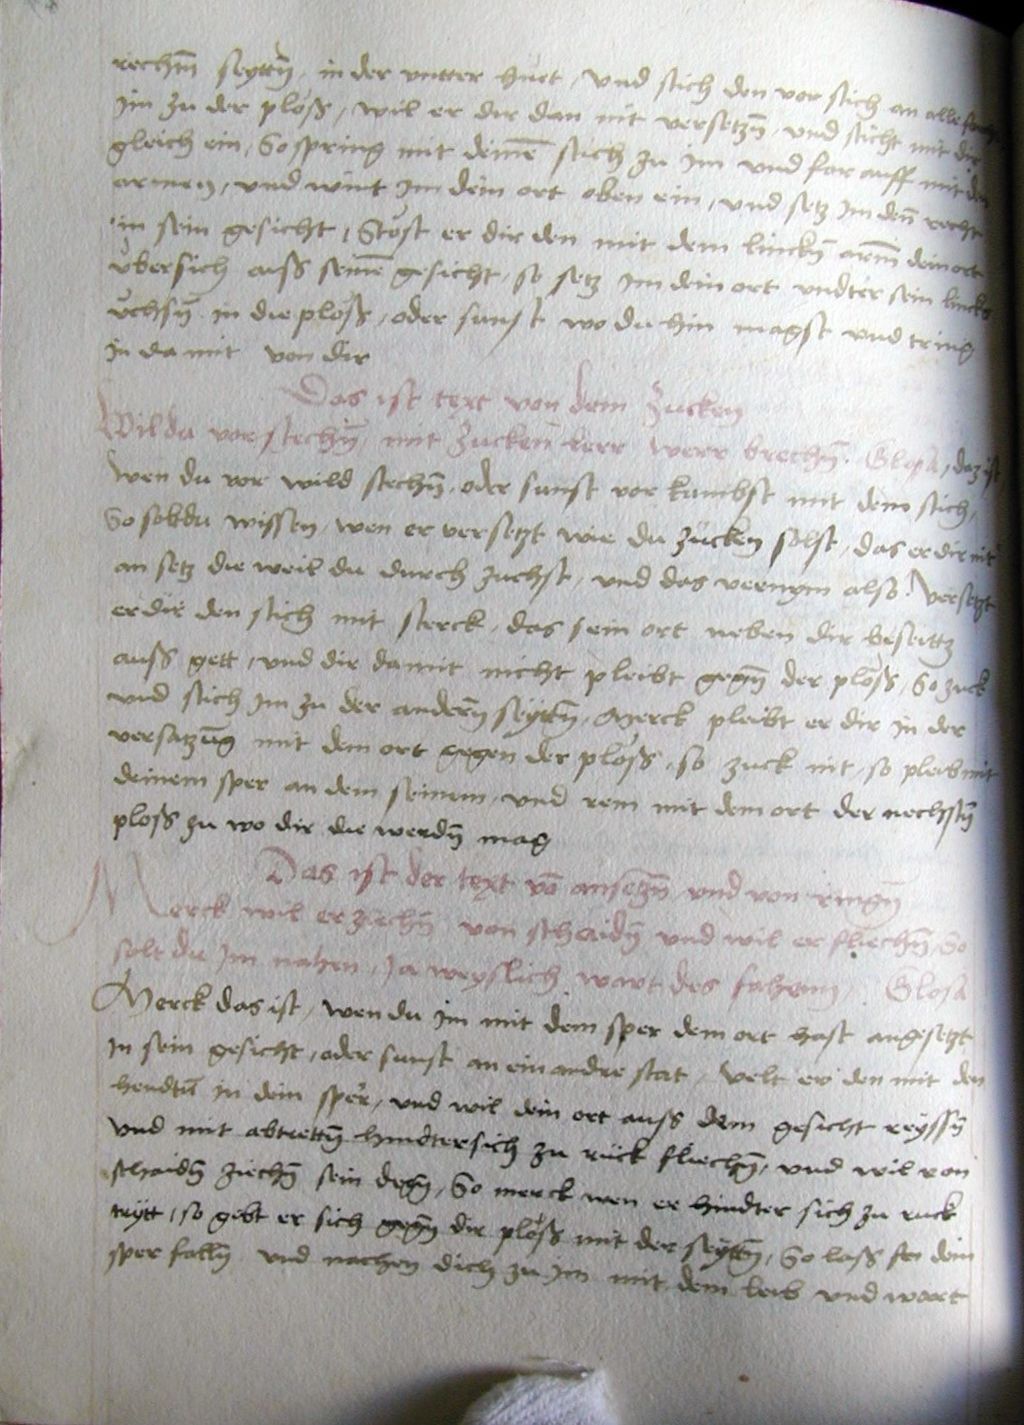 rechtñ seyttñ, in der vntter huet, vnd stich den vor stich an alle
Im zu der plöss, wil er dir dan nit versetzñ, vnd sticht mit dir
gleich ein, So spring mit deinẽ stich zu im vnd far auff mit den
armen, vnd wint Im dein ort oben ein, vnd setz Im den recht
in sein gesicht, Stöst er dir den mit dem linckñ arm dein ort
übersich auss seinẽ gesicht, so setz Im dein ort vndter sein lincks
üchsñ in die plöss, oder sunst wo du hin magst vnd tring
In da mit von dir
Das ist text von dem zucken
Wildu vor stechñ, mit zucken lerr werr brechñ. Glosa, daz ist
wen du vor wild stechñ, oder sunst vor kumbst mit dem stich,
So soltdu wissen, wen er versetzt wie du zucken solst, das er dir nit
an setz die weil du durch zuchst, vnd das vernym also. Versetzt
er dir den stich mit sterck, das sein ort neben dir beseittz
auss gett, vnd dir damit nicht pleibt gegñ der plöss, So zuck
vnd stich Im zu der anderñ seyttñ, Merck pleibt er dir in der
versatzũg mit dem ort gegen der plöss, so zuck nit, so pleib mit
deinem sper an dem seinem, vnd rem mit dem ort der nechstñ
plöss zu wo dir die werdñ mag
Das ist der text võ ansetzñ vnd von ringñ
Merck wil er ziechñ von schaidñ vnd wil er fliechñ, So
solt du Im nahen, Ja weyslich wart des fahenn, Glosa
Merck das ist, wen du Im mit dem sper dem ort hast angesetzt
In sein gesicht, oder sunst an ein andre stat, velt er den mit den
hendtñ In dein sper, vnd wil dein ort auss dem gesicht reyssñ
vnd mit abtrettñ hindtersich zu rück fliechñ, vnd wil von
schaidñ ziechñ sein degñ, So merck wen er hindter sich zu ruck
trytt, so gebt er sich gegñ dir plöss mit der seyttñ, So lass dein
sper fallñ vnd nachen dich zu Im mit dem leib vnd wart